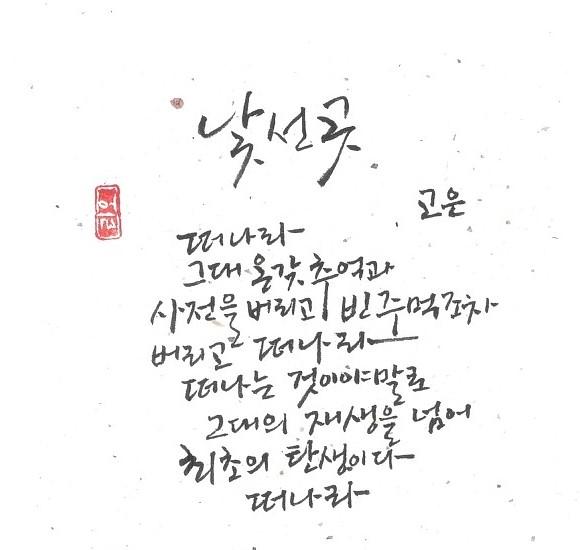 낯선 곳
고은
떠나라
그대 온갖 추억과
사전을 버리고 빈 주먹조차
버리고 떠나라
떠나는 것이야말로
그대의 재생을 넘어
최초의 탄생이다
떠나라